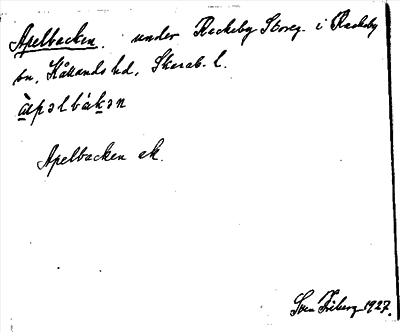 Apelbacken. under Rackeby Storeg. i Rackeby
sn, Kållands hd, Skarab. l.
àpəlbákən
Apelbacken ek.
Sven Friberg 1927.